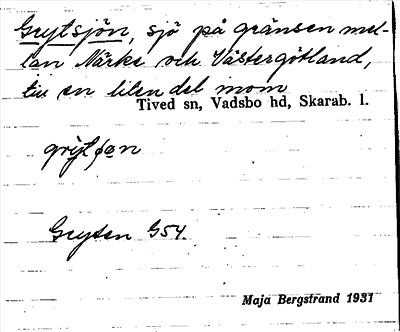 Grytsjön, sjö på gränsen mel-
lan Närke och Västergötland,
till en liten del inom
Tived sn, Vadsbo hd, Skarab. l.
Gryten G54.
Maja Bergstrand 1931